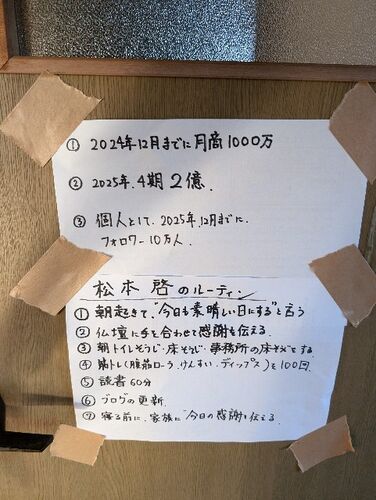 ① 2024年12月までに月商1000万
② 2025年.4期 2億.
③ 個人として.2025年.12月までに.
フォロワー10万人.
松本 啓のルーティン
① 朝起きて、"今日も素晴しい日にする"と言う
② 仏壇に手を合わせて感謝を伝える.
③ 朝トイレそうじ・床そうじ・事務所の床そうじをする
④ 筋トレ(腹筋ローラ.けんすい.ディップス)を100回.
⑤ 読書60分
⑥ ブログの更新
⑦ 寝る前に、家族に"今日の感謝を伝える.